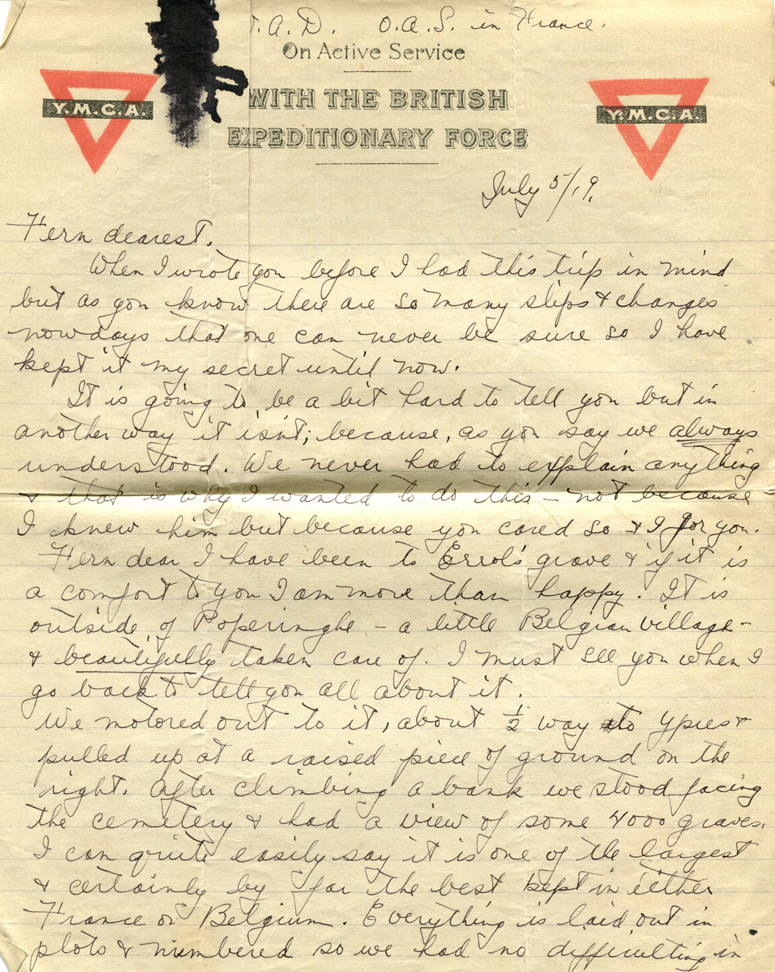 .A.D. O.A.S. in France.
On Active Service
WITH THE BRITISH
EXPEDITIONARY FORCE
Y.M.C.A.
Y.M.C.A.
July 5/19.
Fern dearest.
When I wrote you before I had this trip in mind
but as you know there are so many slips & changes
nowdays that one can never be sure so I have
kept it my secret until now.
It is going to be a bit hard to tell you but in
another way it isnt; because, as you say we always
understood. We never had to explain anything
& that is why I wanted to do this – not because
I knew him but because you cared so & I for you.
Fern dear I have been to Errol's grave & if it is
a comfort to you I am more than happy. It is
outside of Poperinghe – a little Belgian village –
& beautifully taken care of. I must see you when I
go back to tell you all about it.
We motored out to it, about ½ way to Ypres &
pulled up at a raised piece of ground on the
right. After climbing a bank we stood facing
the cemetery & had a view of some 4000 graves.
I can quite easily say it is one of the largest
& certainly by far the best kept in either
France or Belgium. Everything is laid out in
plots & numbered so we had no difficulting in